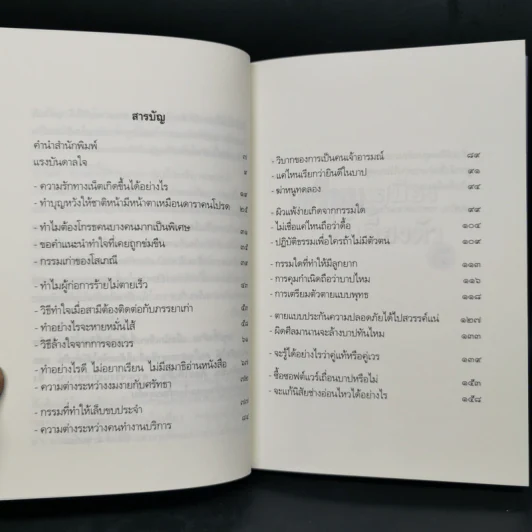 สารบัญ
คำนำสำนักพิมพ์
แรงบันดาลใจ
- ความรักทางเน็ตเกิดขึ้นได้อย่างไร
- ทำบุญหวังให้ชาติหน้ามีหน้าตาเหมือนดาราคนโปรด ๒๕
- ทำไมต้องโกรธคนบางคนมากเป็นพิเศษ
- ขอคำแนะนำทำใจที่เคยถูกข่มขืน
- กรรมเก่าของโสเภณี
- ทำไมผู้ก่อการร้ายไม่ตายเร็ว
- วิธีทำใจเมื่อสามีต้องติดต่อกับภรรยาเก่า
- ทำอย่างไรจะหายหมั่นไส้
- วิธีล้างใจจากการจองเวร
- ทำอย่างไรดี ไม่อยากเรียน ไม่มีสมาธิอ่านหนังสือ
- ความต่างระหว่างงมงายกับศรัทธา
- กรรมที่ทำให้เล็บขบประจำ
- ความต่างระหว่างคนทำงานบริการ
- วิบากของการเป็นคนเจ้าอารมณ์ ๘๙
- แค่ไหนเรียกว่ายินดีในบาป ๙๑
- ฆ่าหนูทดลอง ๙๔
- ผิวแพ้ง่ายเกิดจากกรรมใด ๙๙
- ไม่เชื่อแค่ไหนถือว่าดื้อ ๑๐๔
- ปฏิบัติธรรมเพื่อใครถ้าไม่มีตัวตน ๑๐๙
- กรรมใดที่ทำให้มีลูกยาก ๑๑๓
- การคุมกำเนิดถือว่าบาปไหม ๑๑๖
- การเตรียมตัวตายแบบพุทธ ๑๑๘
- ตายแบบประกันความปลอดภัยได้ไปสวรรค์แน่ ๑๒๗
- ผิดศีลมานานจะล้างบาปทันไหม ๑๓๓
- จะรู้ได้อย่างไรว่าคู่แท้หรือคู่เวร ๑๓๙
- ซื้อซอฟต์แวร์เถื่อนบาปหรือไม่ ๑๕๓
- จะแก้นิสัยช่างอ่อนไหวได้อย่างไร ๑๕๘